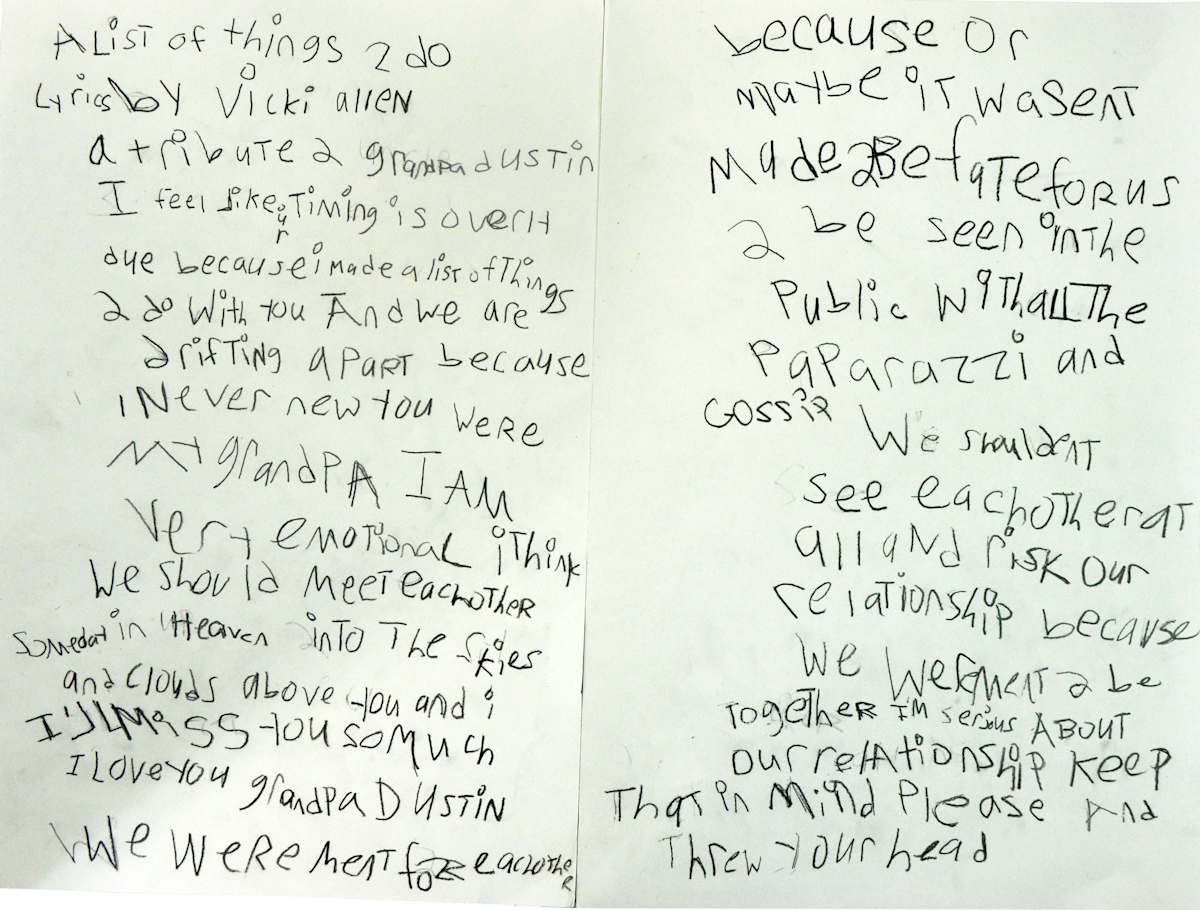 A LIST of things 2 do
Lyrics by Vicki allen
a tribute 2 grandpa dustin
I feel like our Timing is over
due because i made a list of Things
2 do With you And we are
drifting apart because
i Never new you were
My grandpa I AM
Very emotional i Think
We should meet eachother
Someday in Heaven into The skies
and clouds above you and i
I'll Miss you so Much
I Love you grandpa Dustin
We Were ment for eachother
because or
maybe it wasent
Made 2 Be fate for us
2 be seen in the
Public with all The
Paparazzi and
Gossip We shouldent
see eachother at
all and risk our
relationship because
we were ment 2 be
Together I'm serious ABOUT
our relationship keep
That in Mind Please And
Threw your head